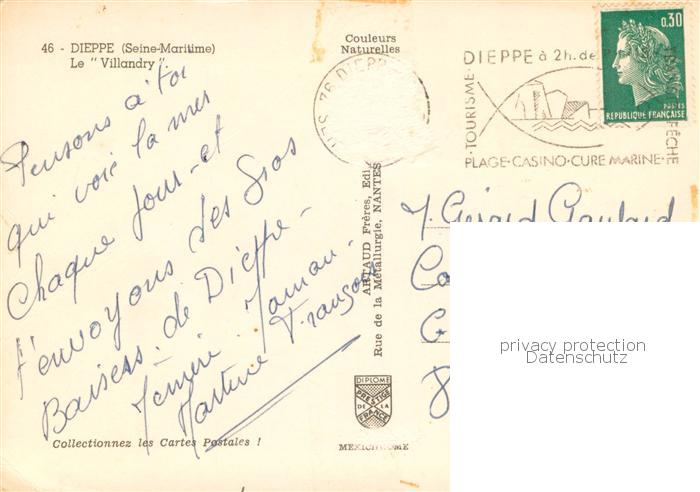 46 - DIEPPE (Seine-Maritime)
Le " Villandry ".
Couleurs
Naturelles
76 DIEPPE
DIEPPE à 2h. de
·TOURISME·
PLAGE·CASINO·CURE MARINE·
PÊCHE
0,30
POSTES
REPUBLIQUE FRANÇAISE
Pensons à toi
qui voie la mer
Chaque jour - et
t'envoyons des Gros
Baisers. de Dieppe -
Mémère. Maman -
Martine Françoise
ARTAUD Frères, Edit.
Rue de la Métallurgie, NANTES
Gérard
privacy protection
Datenschutz
DIPLOME
PRESTIGE
DE LA
FRANCE
MEXICHROME
Collectionnez les Cartes Postales !